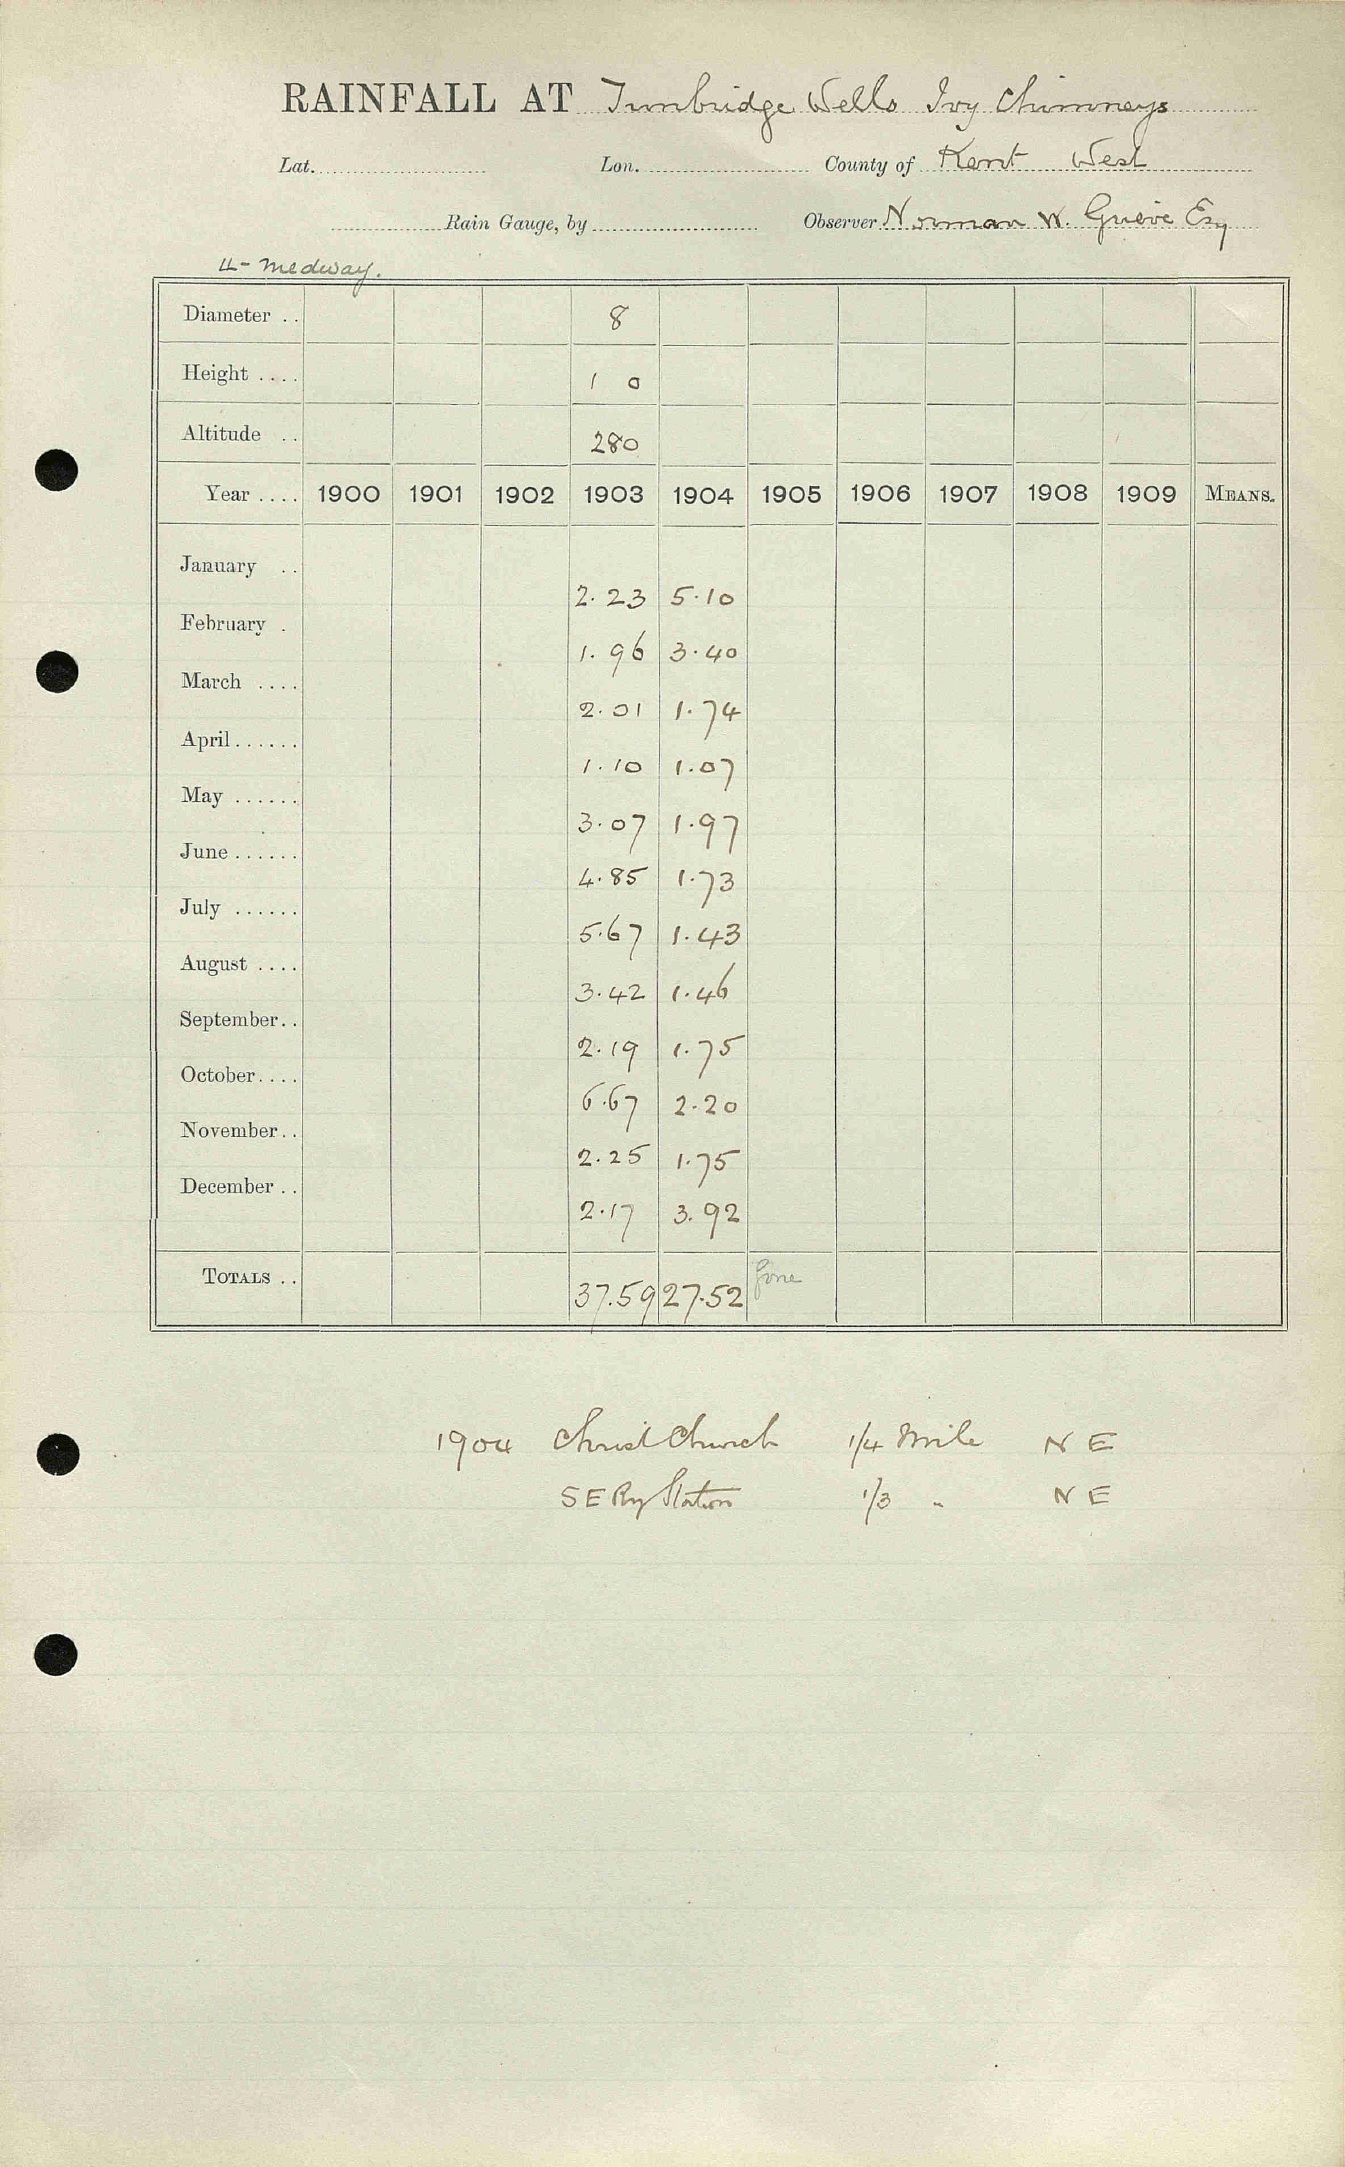 RAINFALL AT Tunbridge Wells Ivy Chimneys
Lat. Lon. County of Kent West
Rain Gauge, by Observer Norman W. Grieve Esq
4- Medway.
Diameter .. 8
Height .... 1 0
Altitude .. 280
Year .... 1900 1901 1902 1903 1904 1905 1906 1907 1908 1909 MEANS.
January .. 2.23 5.10
February . 1.96 3.40
March .... 2.01 1.74
April...... 1.10 1.07
May ...... 3.07 1.97
June...... 4.85 1.73
July ...... 5.67 1.43
August .... 3.42 1.46
September.. 2.19 1.75
October.... 6.67 2.20
November.. 2.25 1.75
December .. 2.17 3.92
TOTALS .. 37.59 27.52 Gone
1904 Christ Church 1/4 Mile N E
S E Ry Station 1/3 " N E